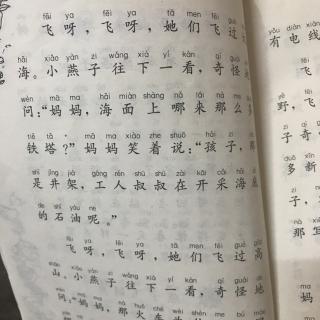 fēi ya fēi ya tā men fēi guò
飞呀，飞呀，她们飞过
hǎi xiǎo yàn zi wǎng xià yí kàn qí guài de
海。小燕子往下一看，奇怪地
wèn mā ma hǎi miàn shàng nǎ lái nà me
问："妈妈，海面上哪来那么
tiě tǎ mā ma xiào zhe shuō hái zi
铁塔？"妈妈笑着说："孩子，
shì jǐng jià gōng rén shū shu zài kāi cǎi hǎi
是井架，工人叔叔在开采海
de shí yóu ne
的石油呢。"
fēi ya fēi ya tā men fēi guò gāo
飞呀，飞呀，她们飞过高
shān xiǎo yàn zi wǎng xià yí kàn qí guài de
山。小燕子往下一看，奇怪地
wèn mā ma nà huǒ chē
问："妈妈，那火车
yǒu diàn xiàn
有电线
野，飞
zi qí
子奇
多新
子，
那怎
妈